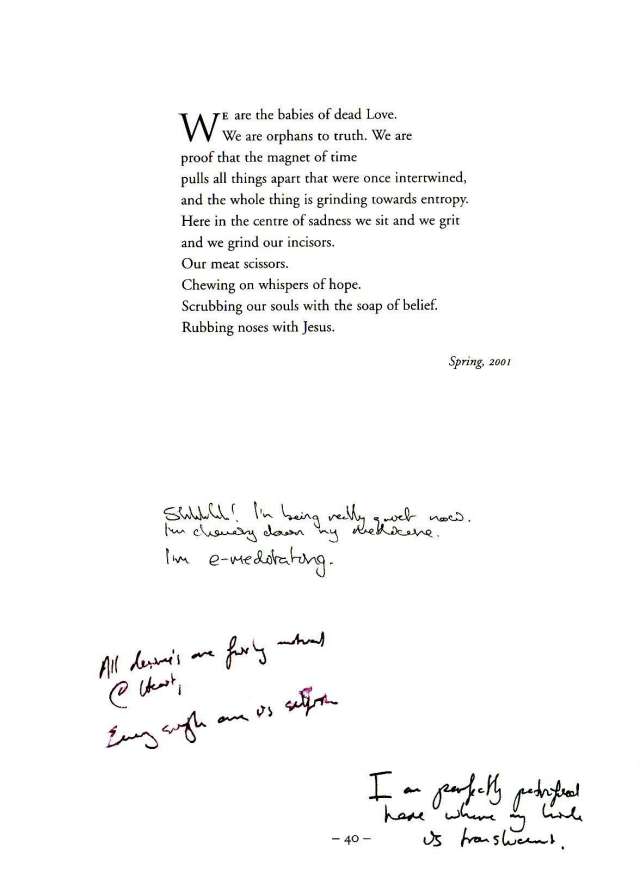 WE are the babies of dead Love.
We are orphans to truth. We are
proof that the magnet of time
pulls all things apart that were once intertwined,
and the whole thing is grinding towards entropy.
Here in the centre of sadness we sit and we grit
and we grind our incisors.
Our meat scissors.
Chewing on whispers of hope.
Scrubbing our souls with the soap of belief.
Rubbing noses with Jesus.
Spring, 2001
I'm being really quiet now.
I'm chewing down my
I'm e-medotating.
All are
@ Heart,
Every single one is
I am perfectly petrified
here where my hide
is translucent.
– 40 –